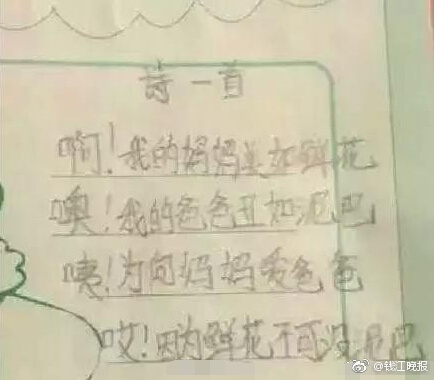 诗一首
啊!我的妈妈美如鲜花
噢!我的爸爸丑如泥巴
咦!为何妈妈爱爸爸
哎!因为鲜花不可没泥巴
@钱江晚报